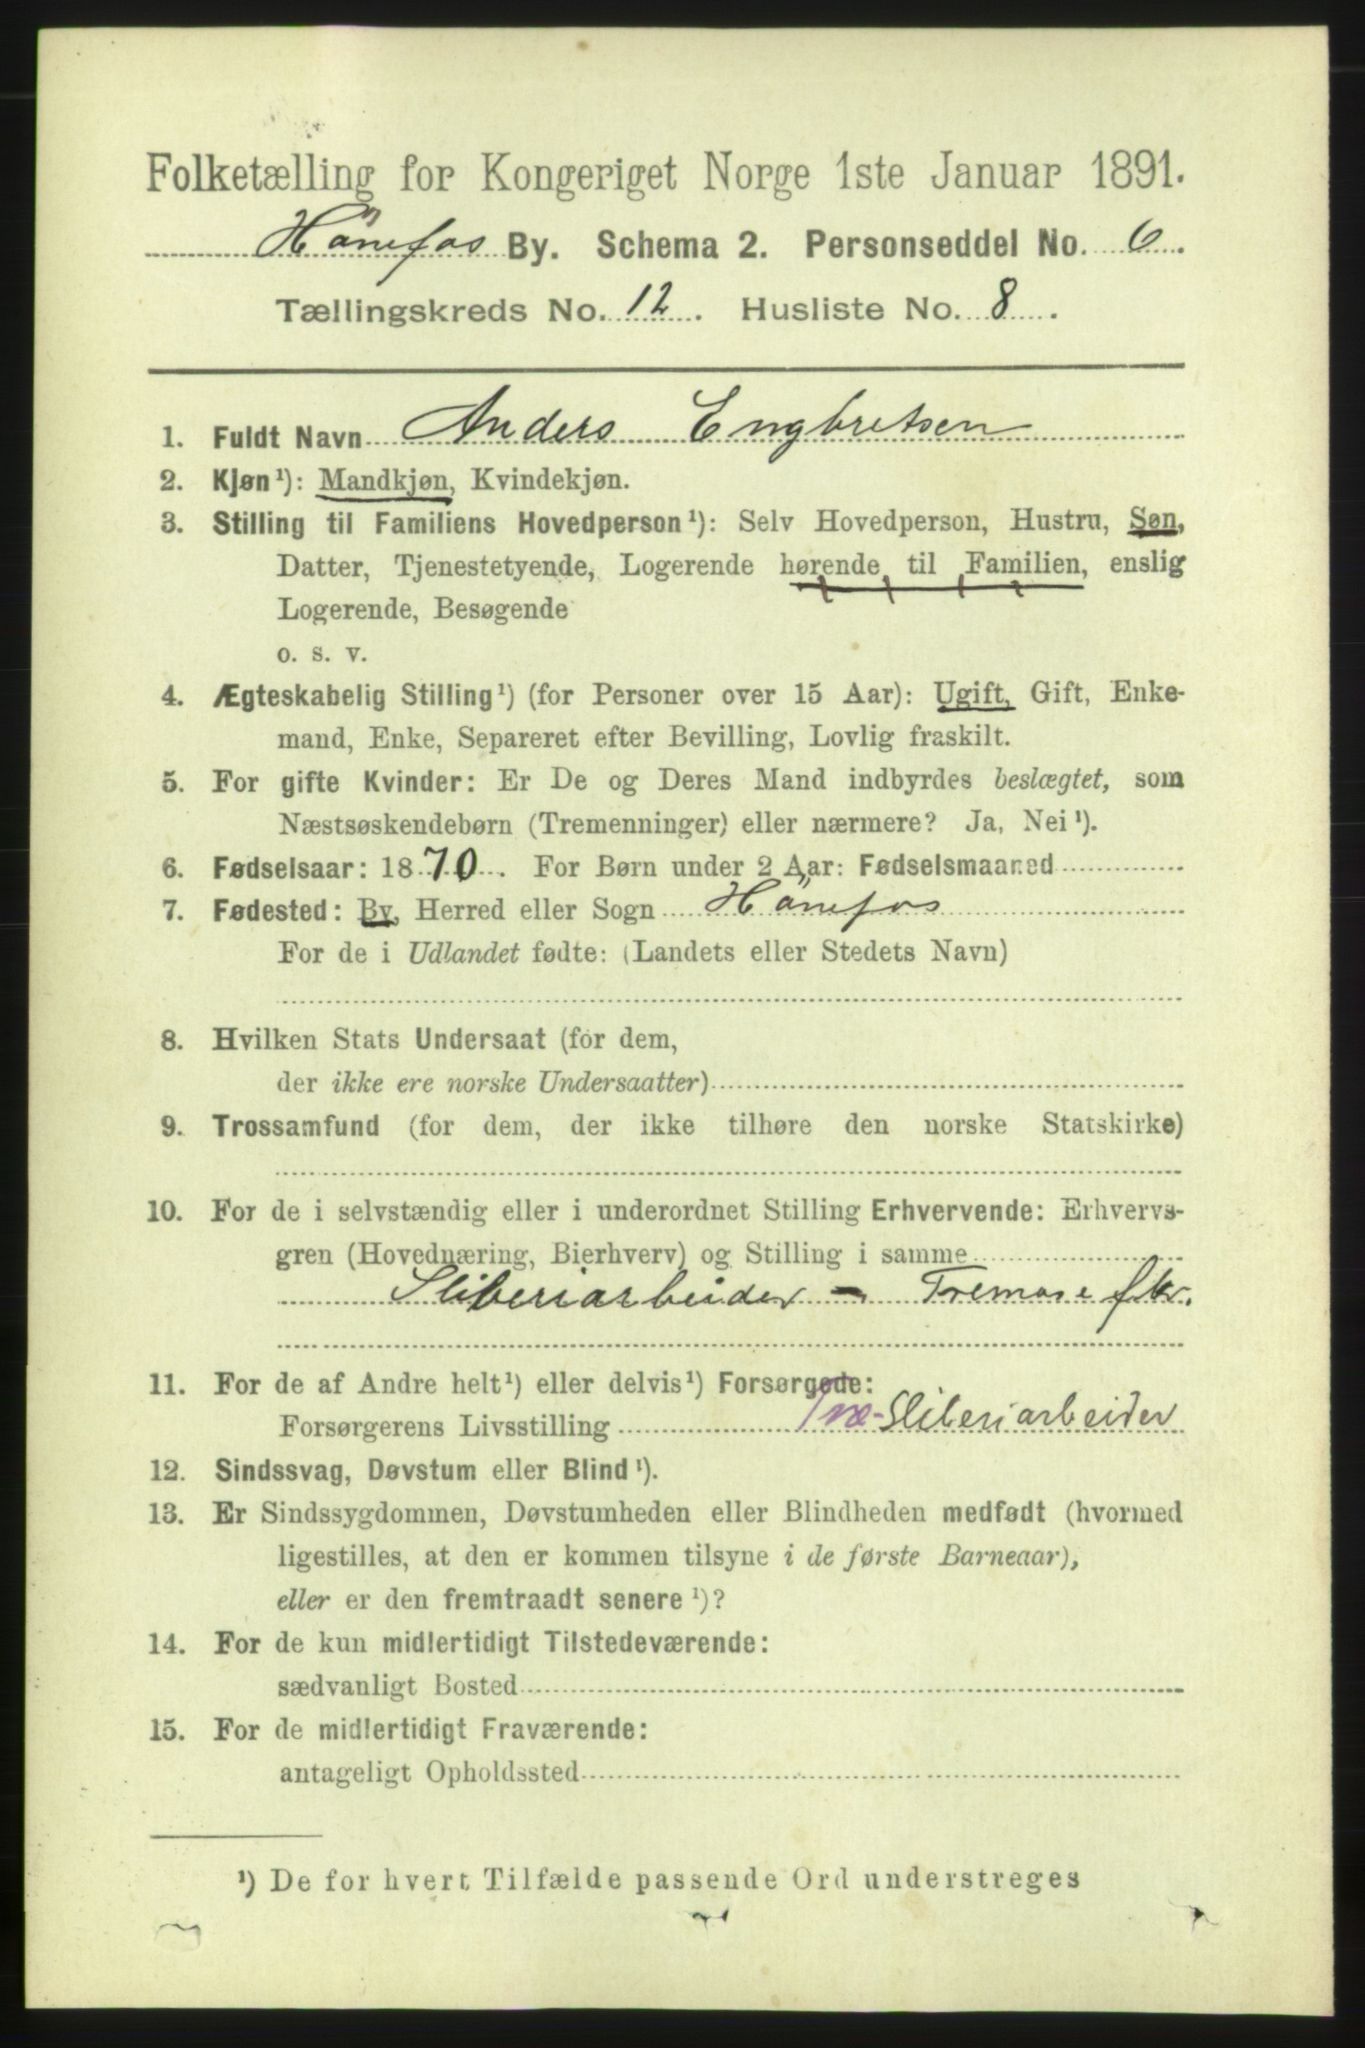 Folketælling for Kongeriget Norge 1ste Januar 1891.
Hönefos By. Schema 2. Personseddel No. 6.
Tællingskreds No. 12. Husliste No. 8.
1. Fuldt Navn Anders Engbretsen
2. Kjøn¹): Mandkjøn, Kvindekjøn.
3. Stilling til Familiens Hovedperson¹): Selv Hovedperson, Hustru, Søn,
Datter, Tjenestetyende, Logerende hørende til Familien, enslig
Logerende, Besøgende
o. s. v.
4. Ægteskabelig Stilling¹) (for Personer over 15 Aar): Ugift, Gift, Enke-
mand, Enke, Separeret efter Bevilling, Lovlig fraskilt.
5. For gifte Kvinder: Er De og Deres Mand indbyrdes beslægtet, som
Næstsøskendebørn (Tremenninger) eller nærmere? Ja, Nei¹).
6. Fødselsaar: 1870. For Børn under 2 Aar: Fødselsmaaned
7. Fødested: By, Herred eller Sogn Hönefos
For de i Udlandet fødte: (Landets eller Stedets Navn)
8. Hvilken Stats Undersaat (for dem,
der ikke ere norske Undersaatter)
9. Trossamfund (for dem, der ikke tilhøre den norske Statskirke)
10. For de i selvstændig eller i underordnet Stilling Erhvervende: Erhvervs-
gren (Hovednæring, Bierhverv) og Stilling i samme
Sliberiarbeider - Tremasse fbr.
11. For de af Andre helt¹) eller delvis¹) Forsørgede:
Forsørgerens Livsstilling Træ-Sliberiarbeider
12. Sindssvag, Døvstum eller Blind¹).
13. Er Sindssygdommen, Døvstumheden eller Blindheden medfødt (hvormed
ligestilles, at den er kommen tilsyne i de første Barneaar),
eller er den fremtraadt senere¹)?
14. For de kun midlertidigt Tilstedeværende:
sædvanligt Bosted
15. For de midlertidigt Fraværende:
antageligt Opholdssted
¹) De for hvert Tilfælde passende Ord understreges